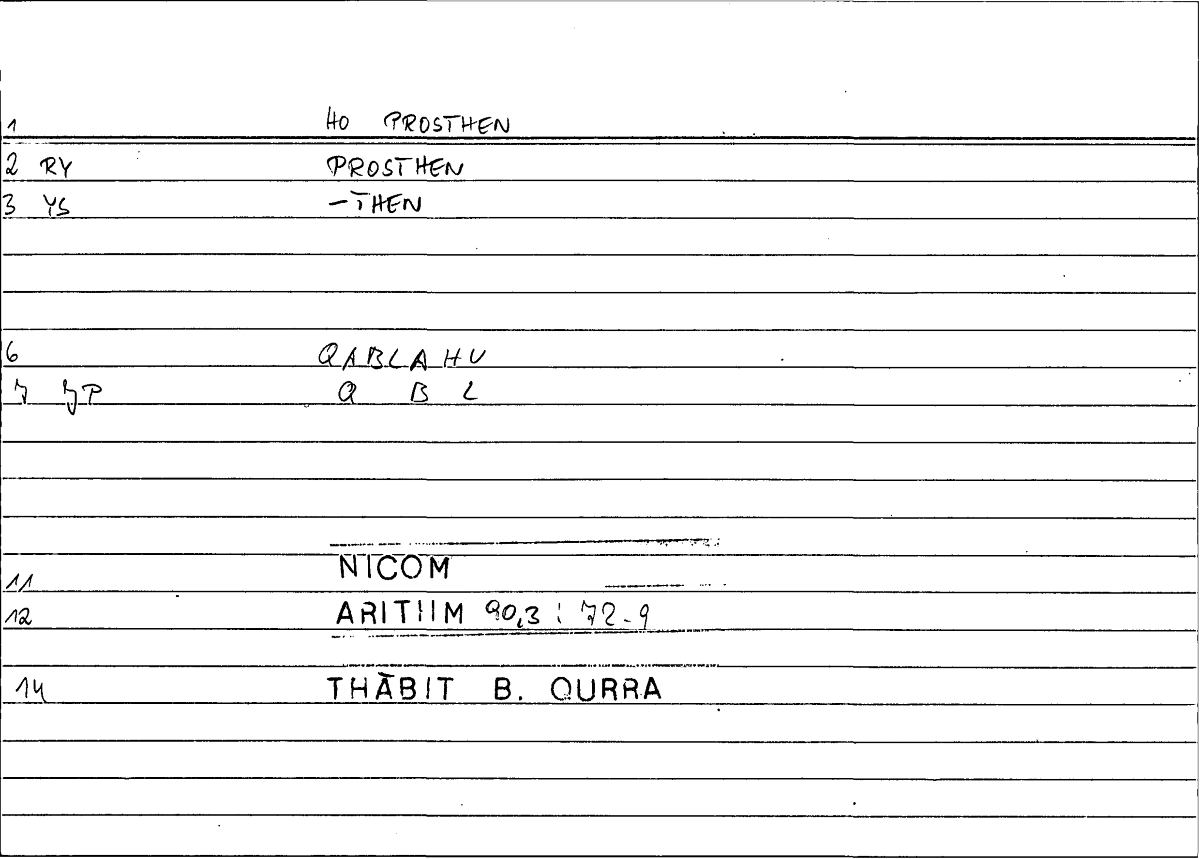 1 HO PROSTHEN
2 RY PROSTHEN
3 YS -THEN
6 QABLAHU
7 JP Q B L
11 NICOM
12 ARITHM 90,3 : 72-9
14 THĀBIT B. QURRA